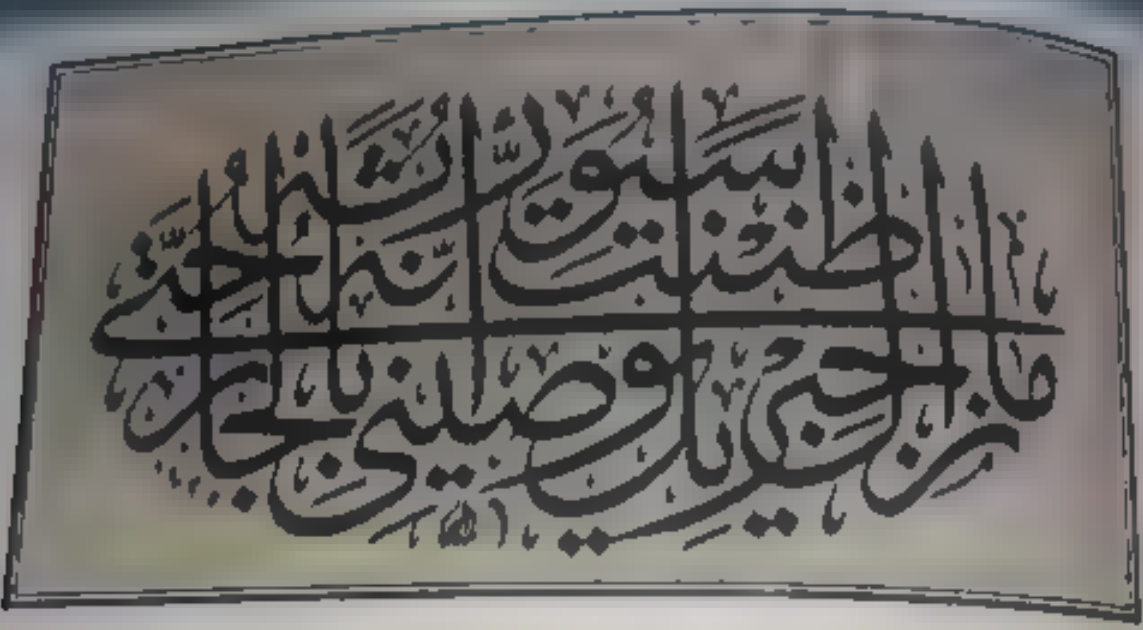 ما زال جبريل يوصيني بالجار
حتى ظننت أنه سيورثه